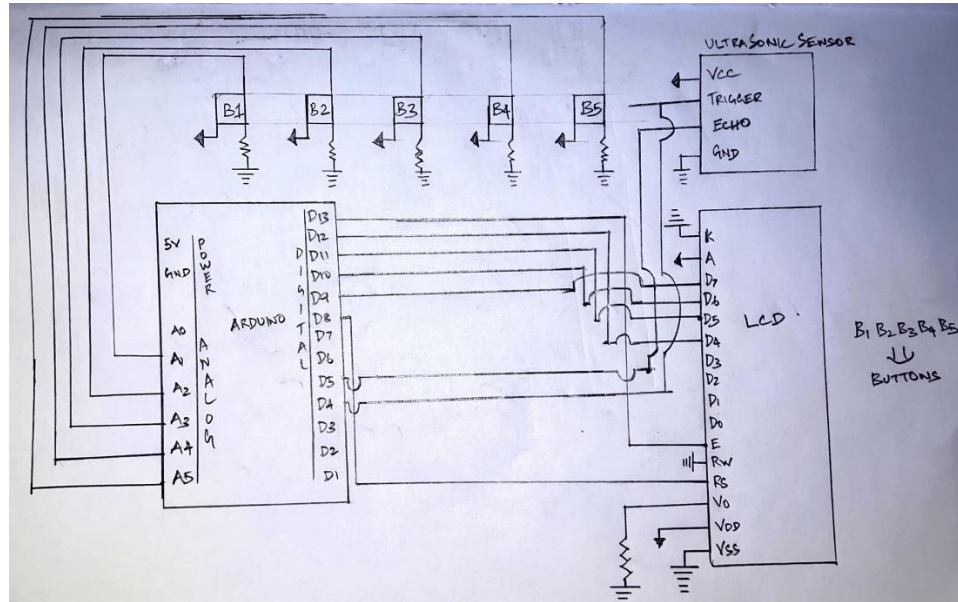 ULTRASONIC SENSOR
VCC
TRIGGER
ECHO
GND
B1 B2 B3 B4 B5
5V
GND
POWER
A0
A1
A2
A3
A4
A5
ANALOG
ARDUINO
DIGITAL
D13
D12
D11
D10
D9
D8
D7
D6
D5
D4
D3
D2
D1
K
A
D7
D6
D5
D4
D3
D2
D1
D0
E
RW
RS
VO
VDD
VSS
LCD
B1 B2 B3 B4 B5
BUTTONS